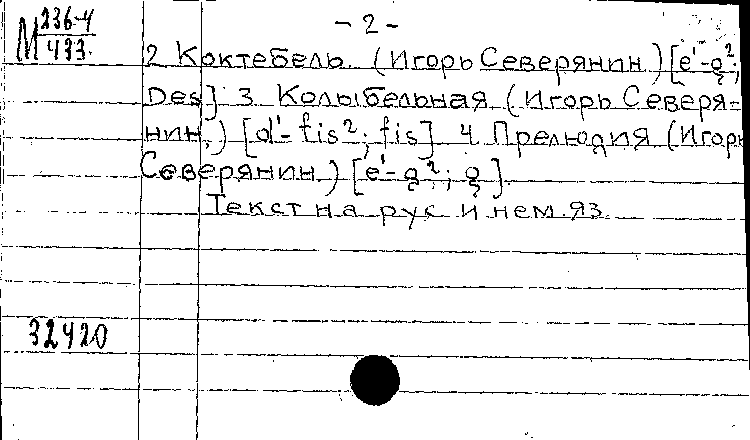 - 2 -
М 236-4
433.
2 Коктебель. (Игорь Северянин.) [e'-g²;
Des] 3 Колыбельная (Игорь Северя-
нин.) [d'-fis²; fis] 4 Прелюдия (Игорь
Северянин) [e'-g²; g].
Текст на рус и нем.яз.
32420